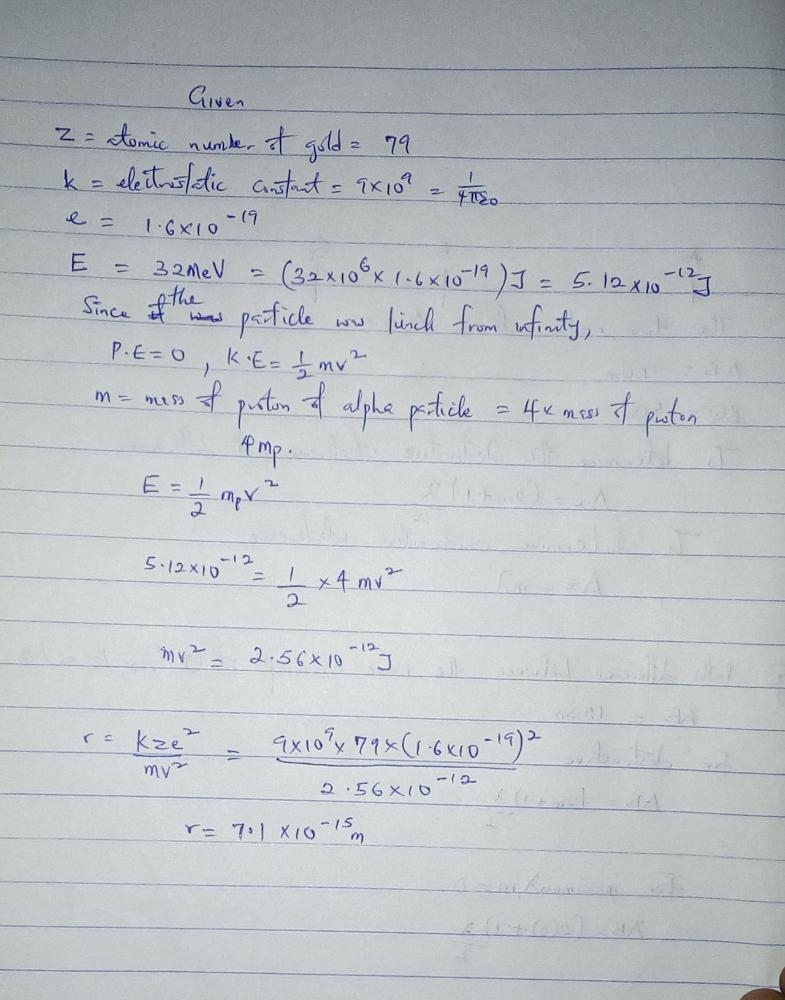 Given
Z = atomic number of gold = 79
k = electrostatic constant = 9×10⁹ = 1/4πε0
e = 1.6×10⁻¹⁹
E = 32MeV = (32×10⁶ × 1.6×10⁻¹⁹)J = 5.12×10⁻¹²J
Since the particle was linch from infinity,
P.E=0, K.E= 1/2 mv²
m = mass of proton of alpha particle = 4× mass of proton
4mp.
E = 1/2 mpv²
5.12×10⁻¹² = 1/2 × 4 mv²
mv² = 2.56×10⁻¹²J
r = kze²/mv² = 9×10⁹×79×(1.6×10⁻¹⁹)²/2.56×10⁻¹²
r = 7.1 ×10⁻¹⁵m